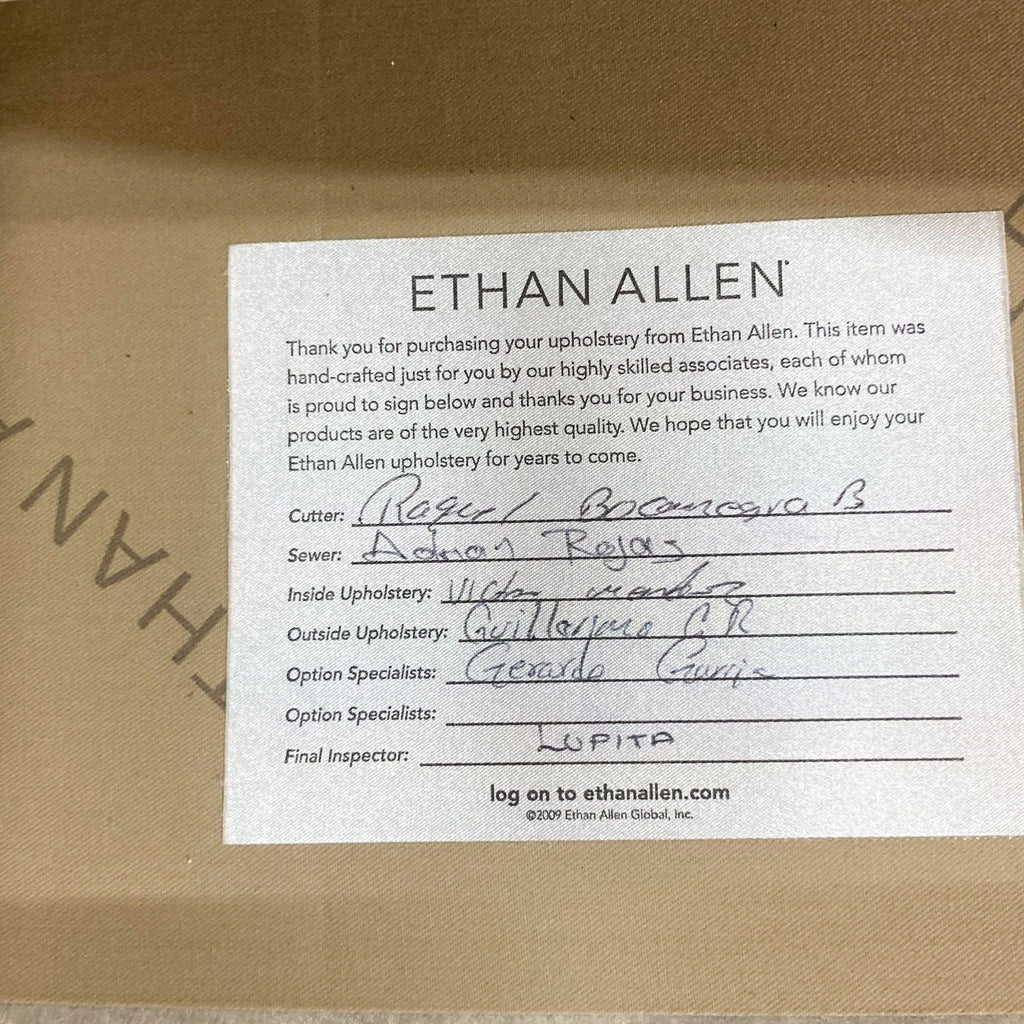 ETHAN ALLEN
Thank you for purchasing your upholstery from Ethan Allen. This item was
hand-crafted just for you by our highly skilled associates, each of whom
is proud to sign below and thanks you for your business. We know our
products are of the very highest quality. We hope that you will enjoy your
Ethan Allen upholstery for years to come.
Cutter: Raquel Bocanegra B
Sewer: Adrian Rojas
Inside Upholstery: Victor
Outside Upholstery: Guillermo C R
Option Specialists: Gerardo Garcia
Option Specialists:
Final Inspector: LUPITA
log on to ethanallen.com
©2009 Ethan Allen Global, Inc.
THAN